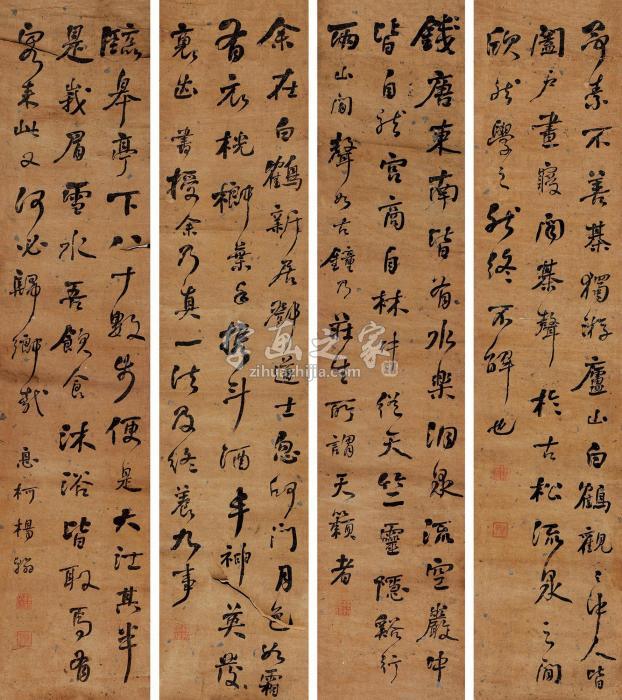 予素不善棊獨游廬山白鶴觀〻中人皆
闔戶晝寢聞棊聲於古松流泉之間
欣然學之然終不解也
錢唐東南皆有水樂洞泉流空巖中
皆自然宮商自林中從天竺靈隱谿行
兩山間聲如古鐘乃莊生所謂天籟者
余在白鶴新居鄧道士忽叩門月色如霜
有衣桄榔葉手携斗酒丰神英發
褎出書授余乃真一法及終養九事
臨皋亭下八十數步便是大江其半
是峩眉雪水吾飲食沐浴皆取焉有
客來此又何必歸鄉哉 息柯楊翰
字画之家
zihuazhijia.com